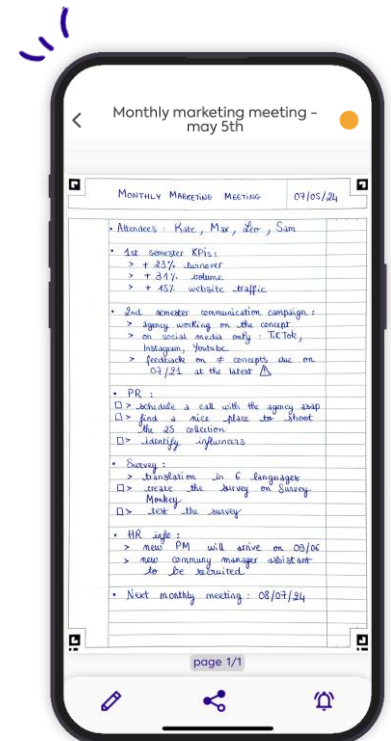 Monthly marketing meeting -
may 5th
MONTHLY MARKETING MEETING 07/05/24
• Attendees : Kate, Max, Leo, Sam
• 1st semester KPIs :
> + 23% turnover
> + 31% volume
> + 45% website traffic
• 2nd semester communication campaign :
> agency working on the concept
> on social media only : TikTok,
Instagram, Youtube
> feedback on ≠ concepts due on
07/21 at the latest ⚠
• PR :
□ > schedule a call with the agency asap
□ > find a nice place to shoot
the 25 collection
□ > identify influencers
• Survey :
> translation in 6 languages
□ > create the survey on Survey
Monkey
□ > test the survey
• HR info :
> new PM will arrive on 09/06
> new communy manager assistant
to be recruited
• Next monthly meeting : 08/07/24
page 1/1